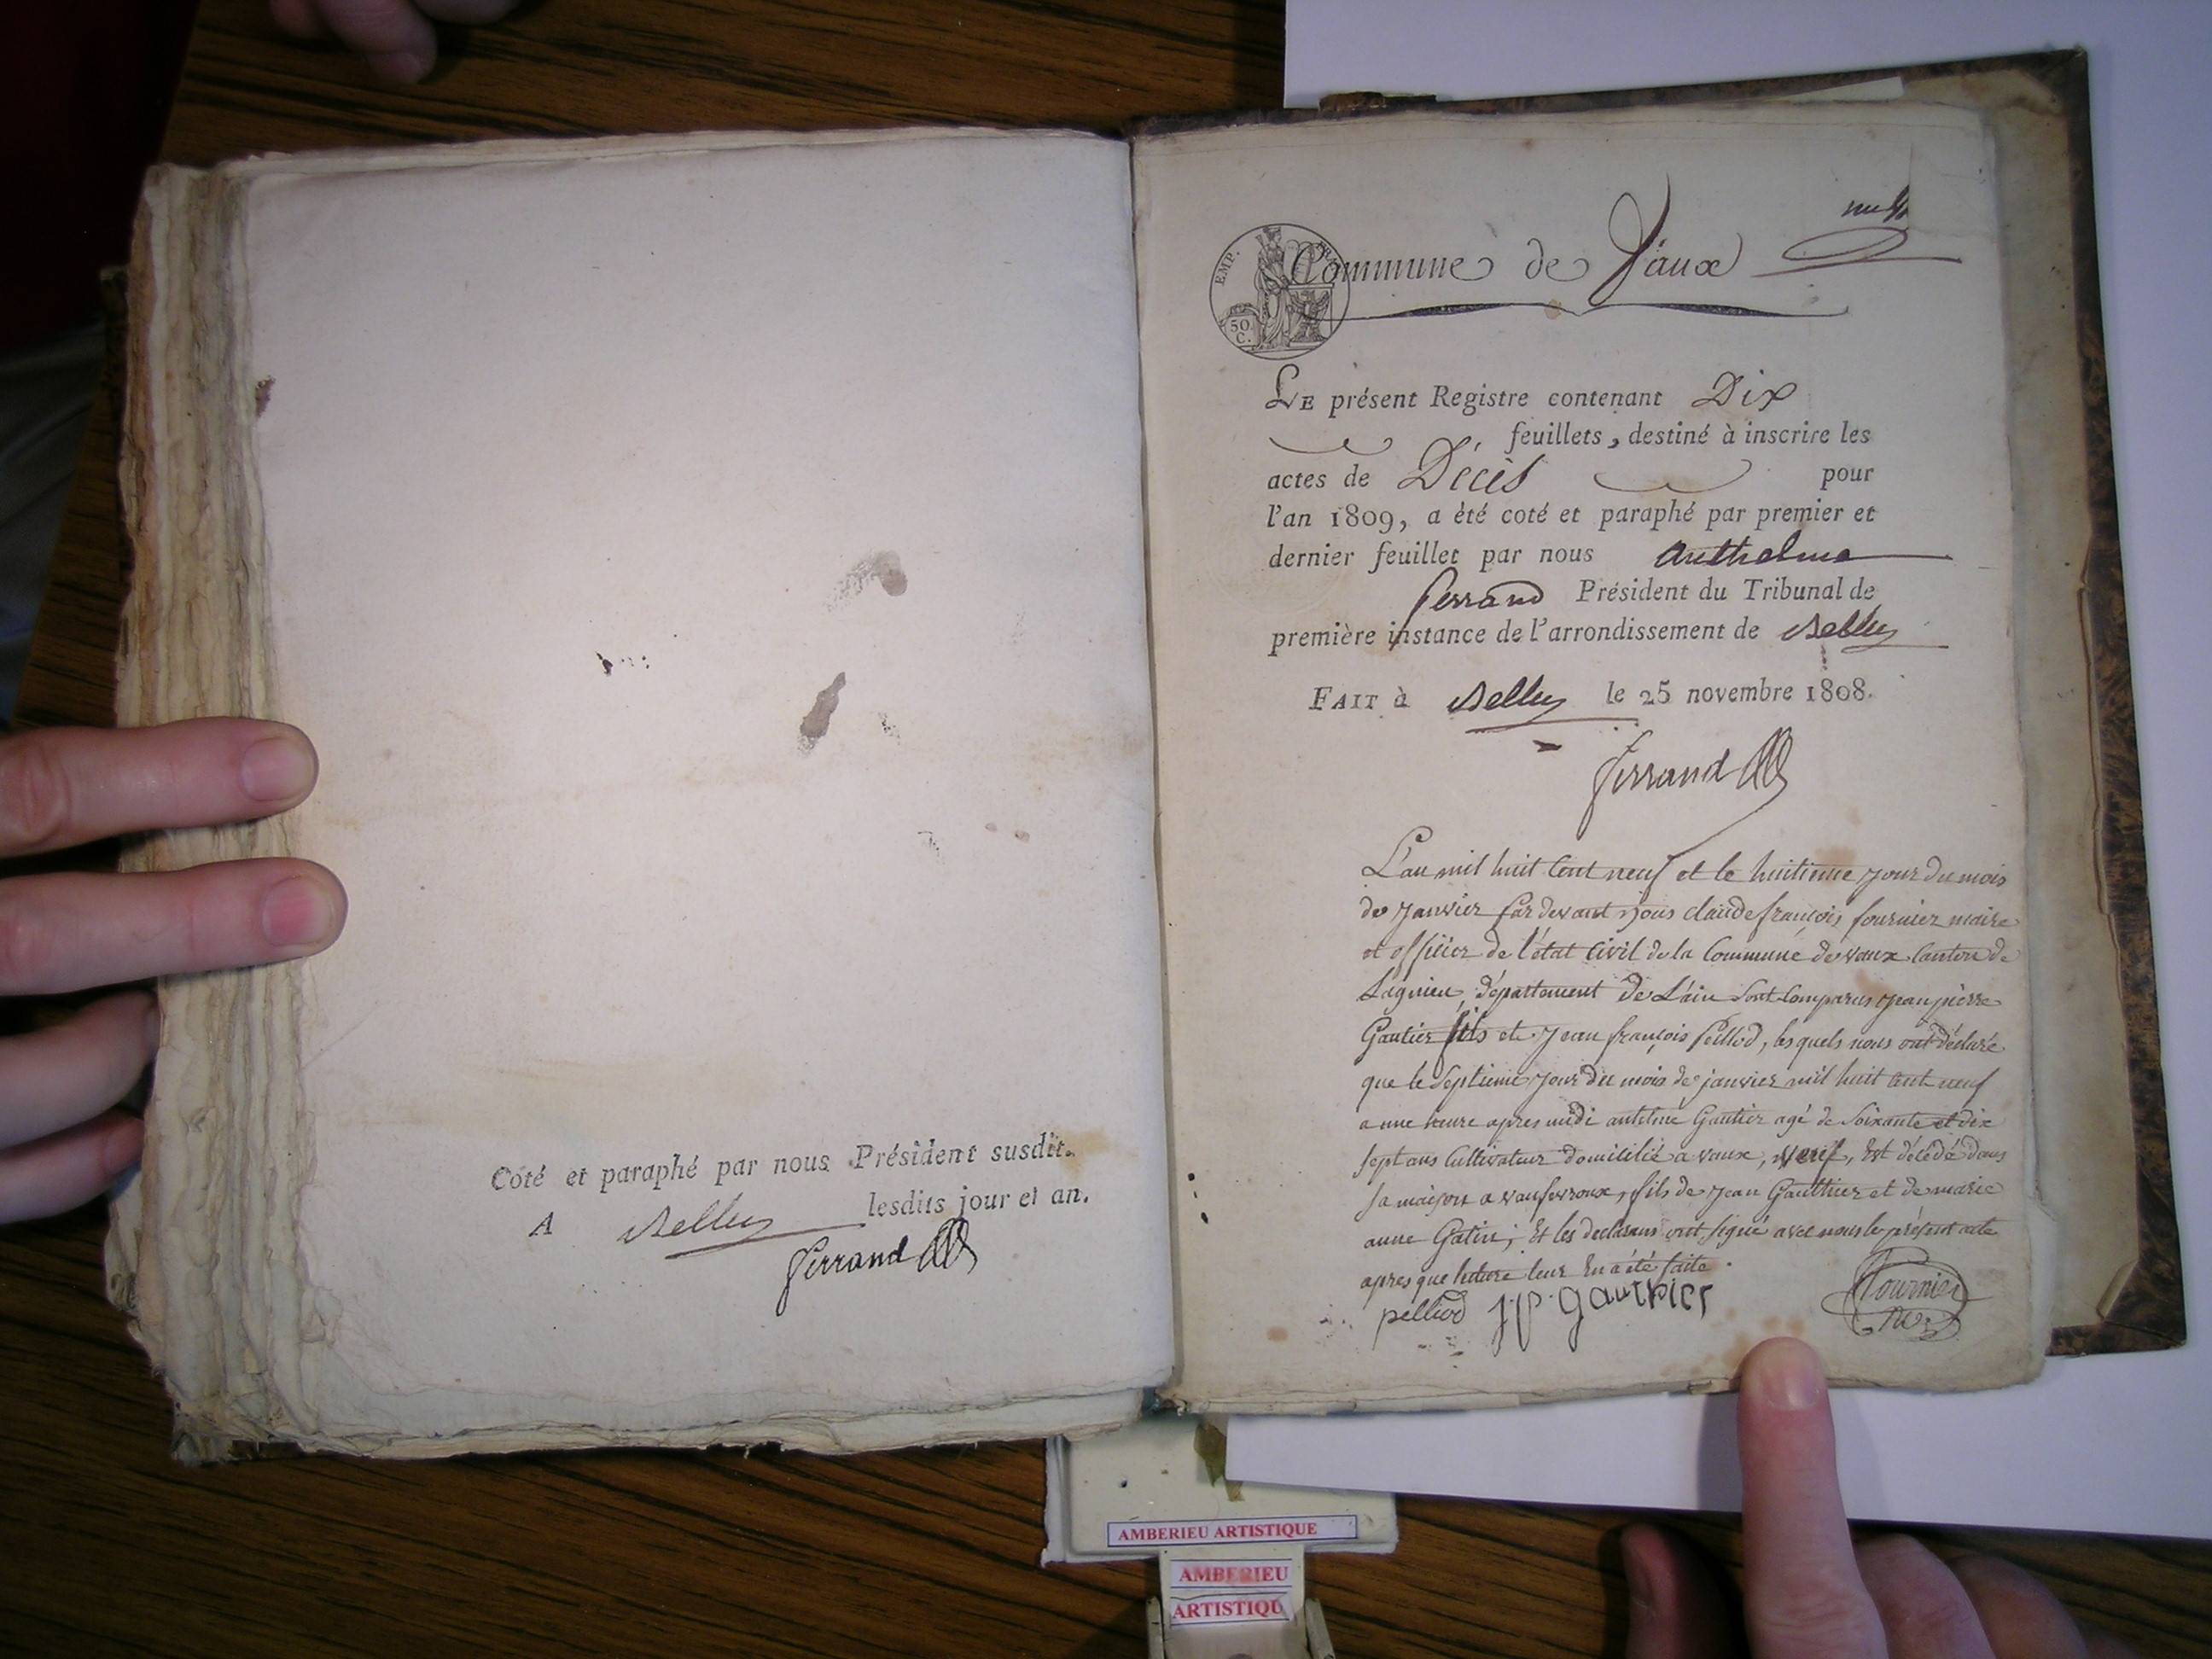 Coté et paraphé par nous Président susdit.
A Belley lesdits jour et an.
Ferrand
Commune de Vaux
EMP. FRA
50
C.
LE présent Registre contenant Dix
feuillets, destiné à inscrire les
actes de Décès pour
l'an 1809, a été coté et paraphé par premier et
dernier feuillet par nous Anthelme
ferrand Président du Tribunal de
première instance de l'arrondissement de Belley
FAIT à Belley le 25 novembre 1808.
Ferrand
L'an mil huit Cent neuf et le huitieme jour du mois
de Janvier par devant Nous claude françois fournier maire
et officier de l'état Civil de la Commune de vaux Canton de
Lagnieu, département de L'ain sont Comparus jean pierre
Gautier fils et Jean françois Pelliod, lesquels nous ont déclaré
que le Septieme jour du mois de janvier mil huit cent neuf
a une heure apres midi antelme Gautier agé de Soixante et dix
sept ans Cultivateur domicilié a vaux, veuf, Est décédé dans
sa maison a vaufevroux, fils de Jean Gauthier et de marie
anne Gatin; Et les declarans ont signé avec nous le présent acte
apres que lecture leur En a été faite.
pelliod J. P. gauthier
Fournier
AMBERIEU ARTISTIQUE
AMBERIEU
ARTISTIQU